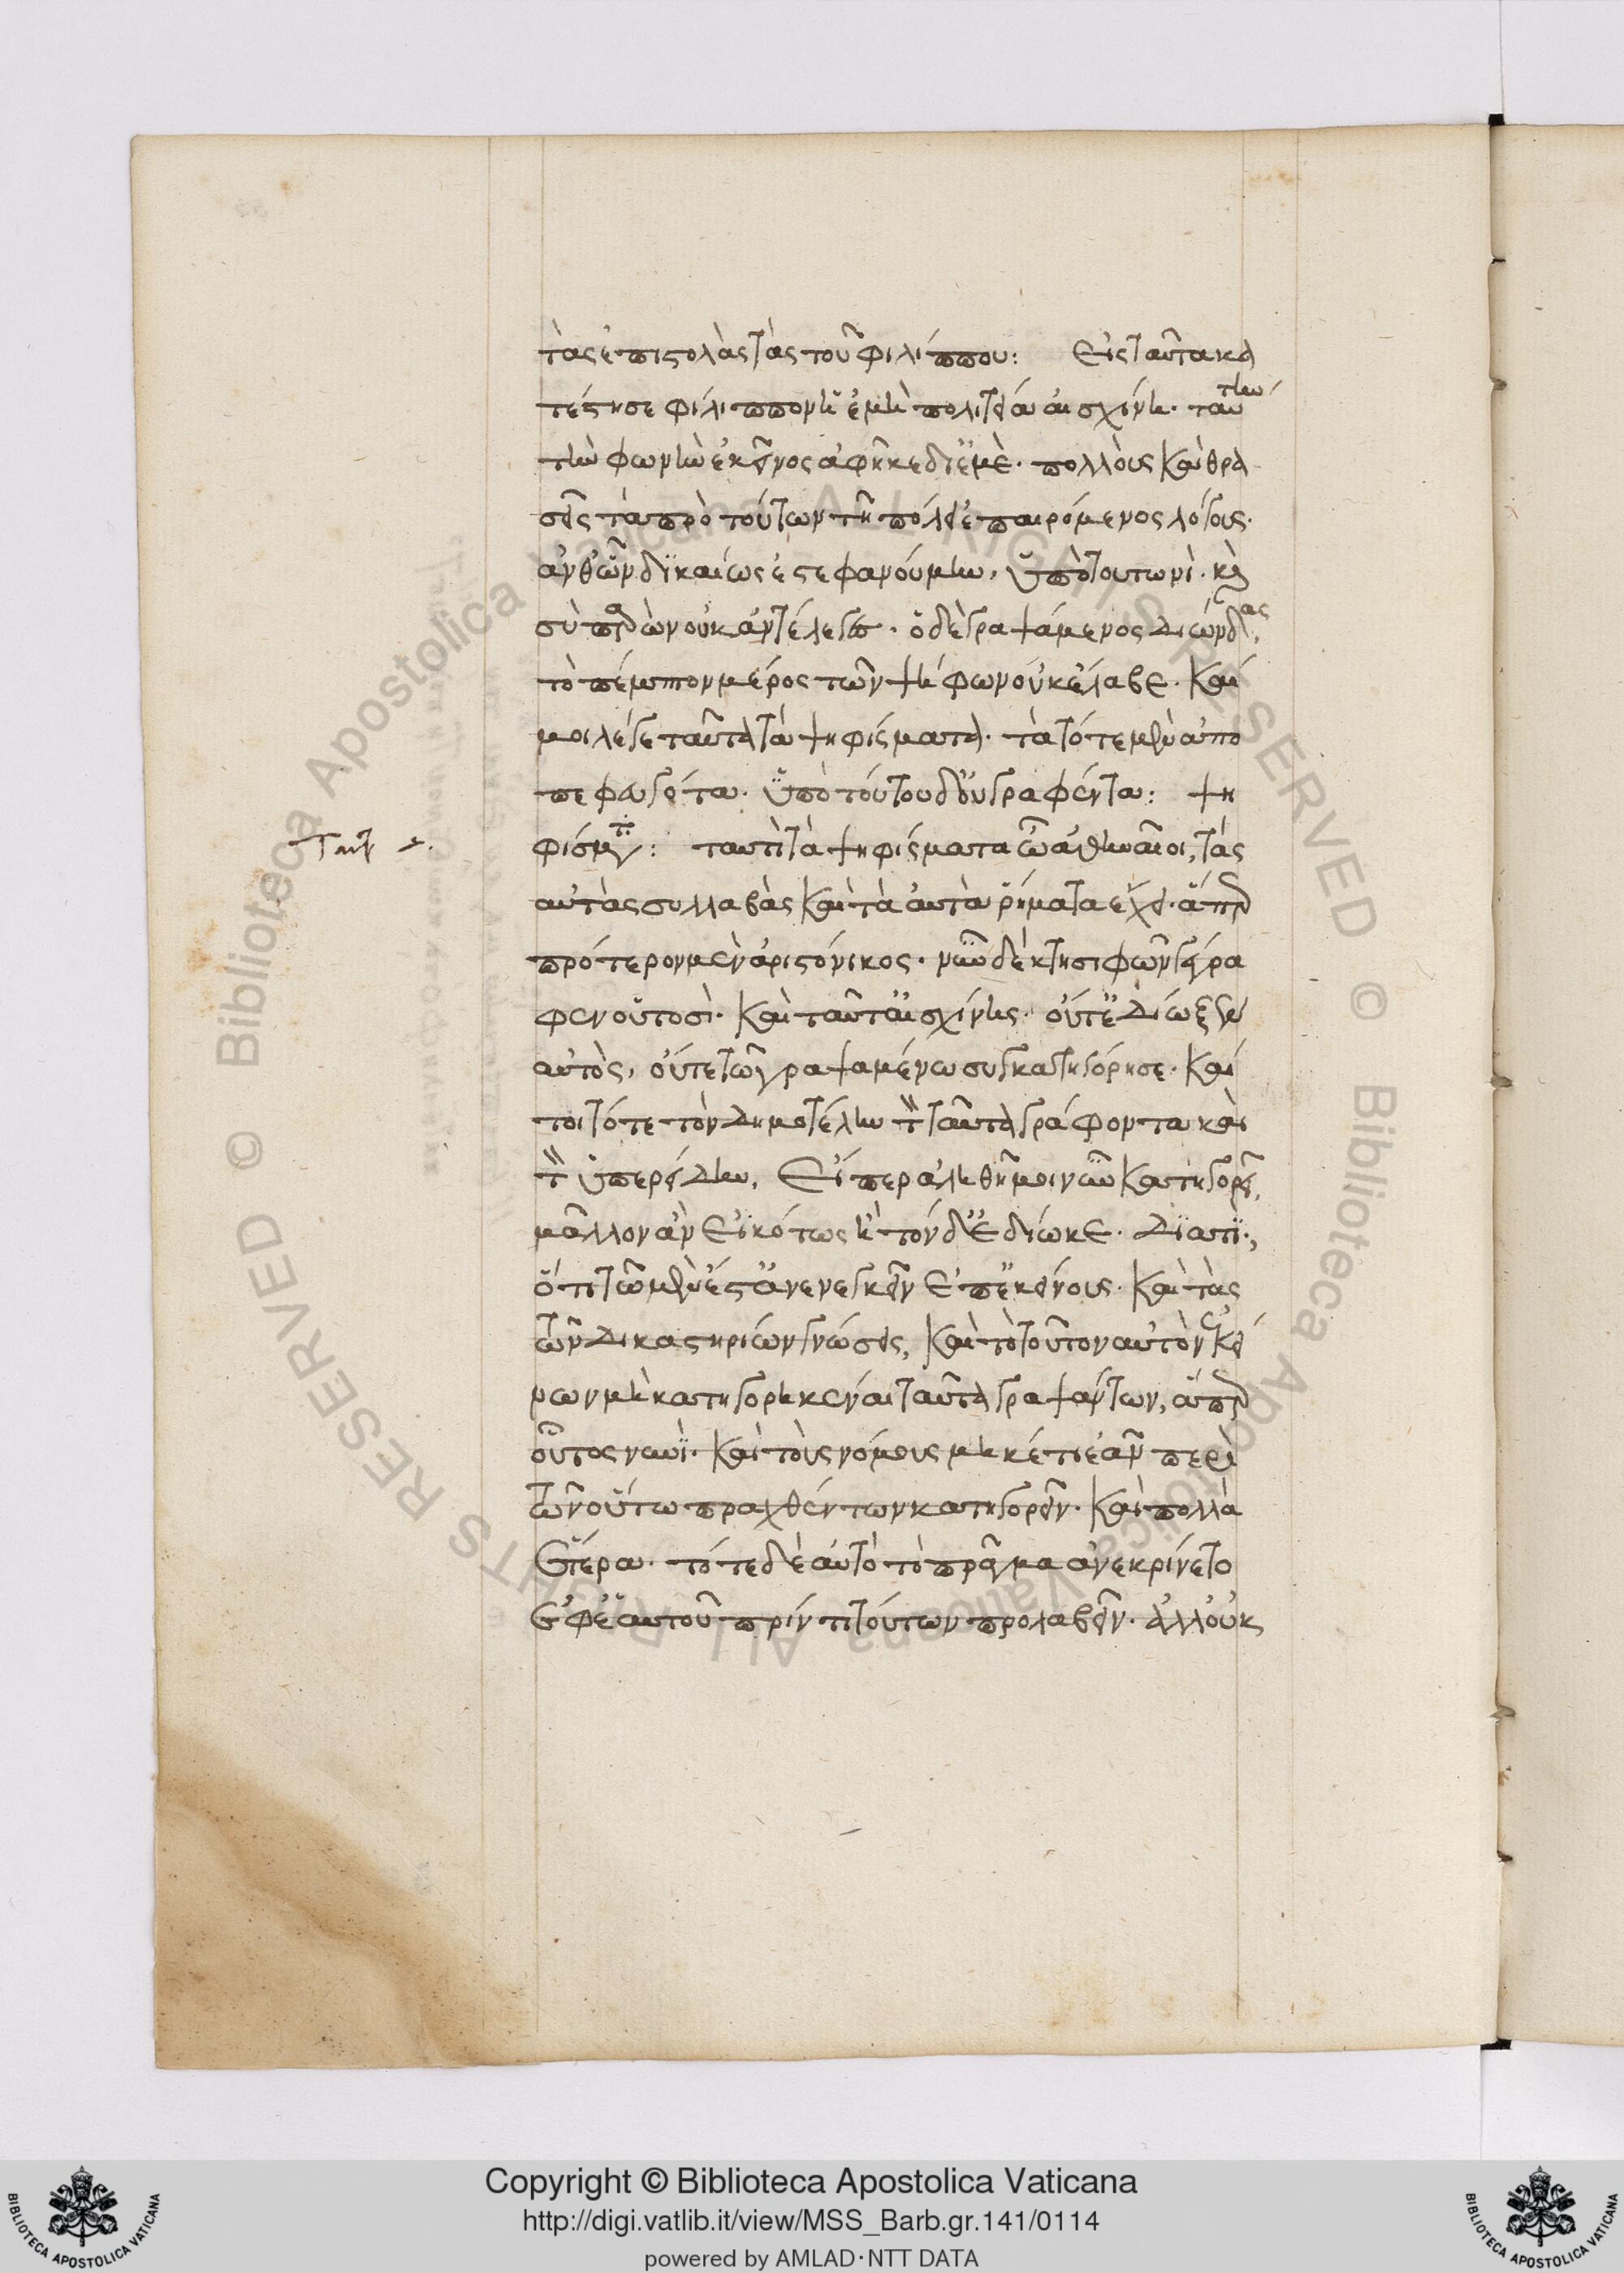 τὰς ἐπιστολὰς τὰς τοῦ φιλίππου: Εἰς ταῦτα κα
τέστησε φίλιππον ἡ ἐμὴ πολιτεία αἰσχίνη. ταύτην
τὴν φωνὴν ἐκεῖνος ἀφῆκε δι' ἐμὲ. πολλοὺς καὶ θρα
σεῖς τὰ πρὸ τούτων τῆ πόλει ἐπαιρόμενος λόγους.
ἀνθ' ὧν δικαίως ἐστεφανούμην, ὑπὸ τουτωνὶ. καὶ
σὺ παρὼν οὐκ ἀντέλεγες. ὁ δὲ γραψάμενος διώνδας,
τὸ πέμπτον μέρος τῶν ψήφων οὐκ ἔλαβε. Καί
μοι λέγε ταῦτα τὰ ψηφίσματα. τὰ τότε μὲν ἀπο
πεφευγότα. ὑπὸ τούτου δ' οὐ γραφέντα: ψη
φίσματα: ταυτὶ τὰ ψηφίσματα ὦ ἀθηναῖοι, τὰς
αὐτὰς συλλαβὰς καὶ τὰ αὐτὰ ῥήματα ἔχει. ἅπερ
πρότερον μὲν ἀριστόνικος. νῦν δὲ κτησιφῶν γέγρα
φεν οὑτοσὶ. καὶ ταῦτ' αἰσχίνης. οὔτ' ἐδίωξεν
αὐτὸς, οὔτε τῶ γραψαμένω συγκατηγόρησε. Καί
τοι τότε τὸν δημομέλην τὸν ταῦτα γράφοντα καὶ
τὸν ὑπερείδην, Εἴπερ ἀληθῆ μοι νῦν κατηγορεῖ,
μᾶλλον ἂν εἰκότως ἢ τόνδ' ἐδίωκε. διατί;
ὅτι τῶ μὲν ἔστ' ἀνενεγκεῖν ἐπ' ἐκείνους. καὶ τὰς
τῶν δικαστηρίων γνώσεις, καὶ τὸ τοῦτον αὐτὸν ἐκεί
νων μὴ κατηγορηκέναι ταῦτα γραψάντων, ἅπερ
οὗτος νυνὶ. καὶ τοὺς νόμους μηκέτι ἐᾶν περὶ
τῶν οὕτω πραχθέντων κατηγορεῖν. καὶ πολλὰ
ἕτερα. τότε δὲ αὐτὸ τὸ πρᾶγμα ἀνεκρίνετο
ἐφ' ἑαυτοῦ πρίν τι τούτων προλαβεῖν. ἀλλ' οὐκ
© Biblioteca Apostolica Vaticana ALL RIGHTS RESERVED © Biblioteca Apostolica Vaticana ALL RIGHTS RESERVED
Copyright © Biblioteca Apostolica Vaticana
http://digi.vatlib.it/view/MSS_Barb.gr.141/0114
powered by AMLAD·NTT DATA
BIBLIOTECA APOSTOLICA VATICANA
BIBLIOTECA APOSTOLICA VATICANA